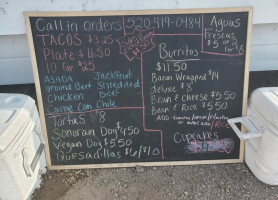 Call in orders 520-419-0484
TACOS $3.25 ea
Plate $11.50
10 for $25
ASADA Jackfruit
Ground Beef Shredded
Chicken Beef
Carne Con Chile
Tortas $8
Sonoran Dog $4.50
Vegan Dog $5.50
Quesadillas $6/$10
Burritos
$11.50
Bacon Wrapped $14
deluxe $8
Bean & Cheese $5.50
Bean & Rice $5.50
ADD
Cupcakes
Aguas
Frescas
$5 or 2
for $8